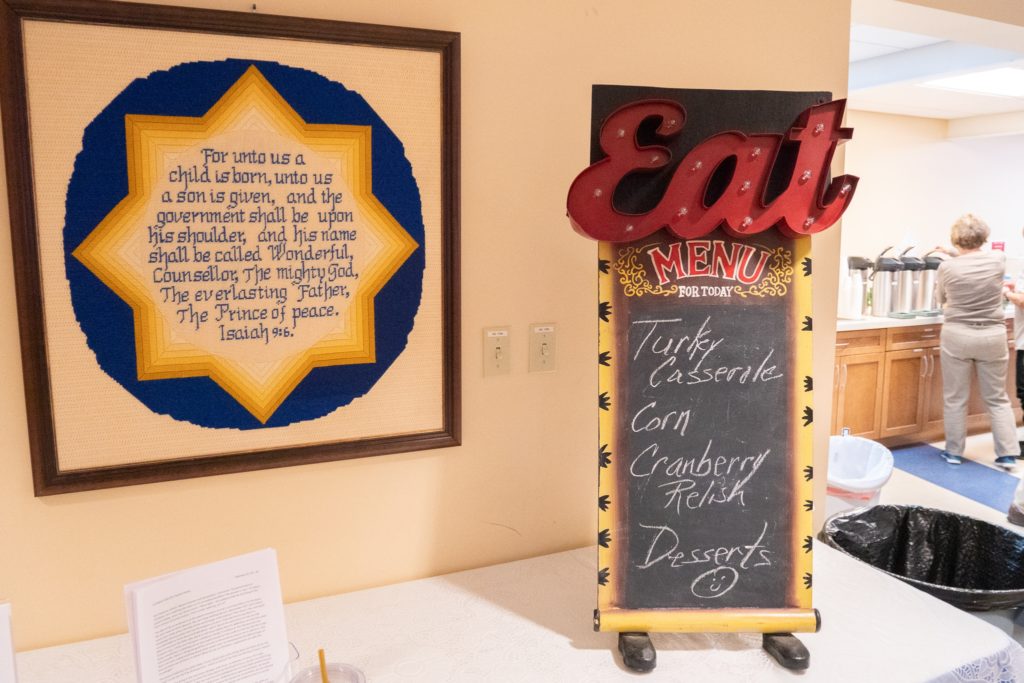 For unto us a
child is born, unto us
a son is given, and the
government shall be upon
his shoulder, and his name
shall be called Wonderful,
Counsellor, The mighty God,
The everlasting Father,
The Prince of peace.
Isaiah 9:6.
Eat
MENU
FOR TODAY
Turky
Casserole
Corn
Cranberry
Relish
Desserts